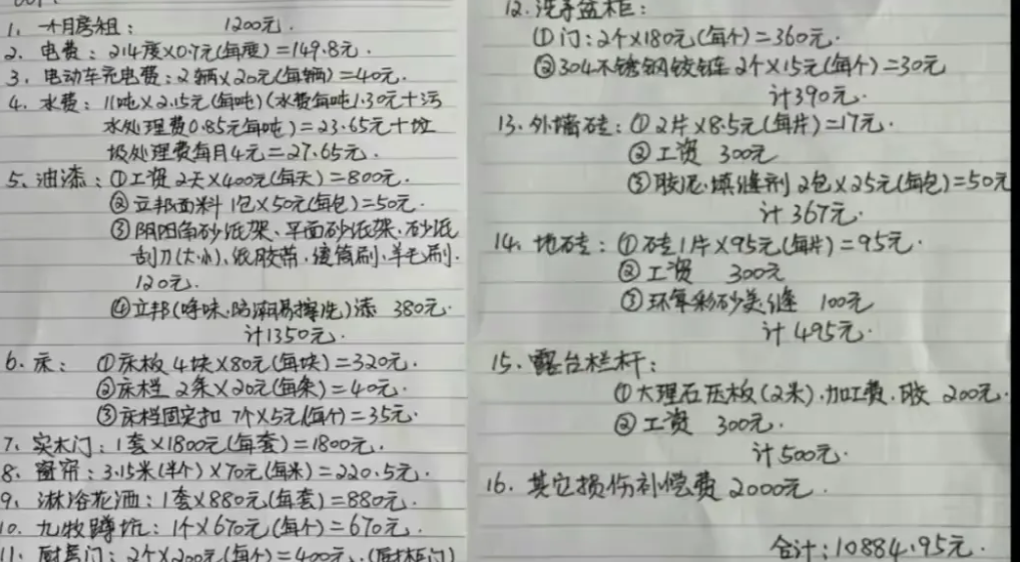 1、一个月房租： 1200元.
2、电费：214度×0.7元(每度)=149.8元.
3、电动车充电费：2辆×20元(每辆)=40元.
4、水费：11吨×2.15元(每吨)(水费每吨1.30元+污
水处理费0.85元每吨)=23.65元+垃
圾处理费每月4元=27.65元.
5、油漆：①工资 2天×400元(每天)=800元.
②立邦面料 1包×50元(每包)=50元.
③阴阳角砂纸架、平面砂纸架、砂纸
刮刀(大小)、纸胶带,滚筒刷、羊毛刷.
120元.
④立邦(净味.防潮易擦洗)漆 380元.
计1350元.
6、床： ①床板 4块×80元(每块)=320元.
②床档 2条×20元(每条)=40元.
③床档固定扣 7个×5元(每个)=35元.
7、实木门：1套×1800元(每套)=1800元.
8、窗帘：3.15米(半个)×70元(每米)=220.5元.
9、淋浴花洒：1套×880元(每套)=880元.
10、九牧蹲坑：1个×670元(每个)=670元.
11、厨房门：2个×200元(每个)=400元.(厨柜门)
12.洗手盆柜：
①门：2个×180元(每个)=360元.
②304不锈钢铰链 2个×15元(每个)=30元
计390元.
13.外墙砖：①2片×8.5元(每片)=17元.
②工资 300元
③胶泥.填缝剂 2包×25元(每包)=50元
计367元.
14.地砖：①砖1片×95元(每片)=95元.
②工资 300元
③环氧彩砂美缝 100元
计495元.
15.露台栏杆：
①大理石压板(2米).加工费.胶 200元.
②工资 300元.
计500元.
16.其它损伤补偿费 2000元.
合计：10884.95元.